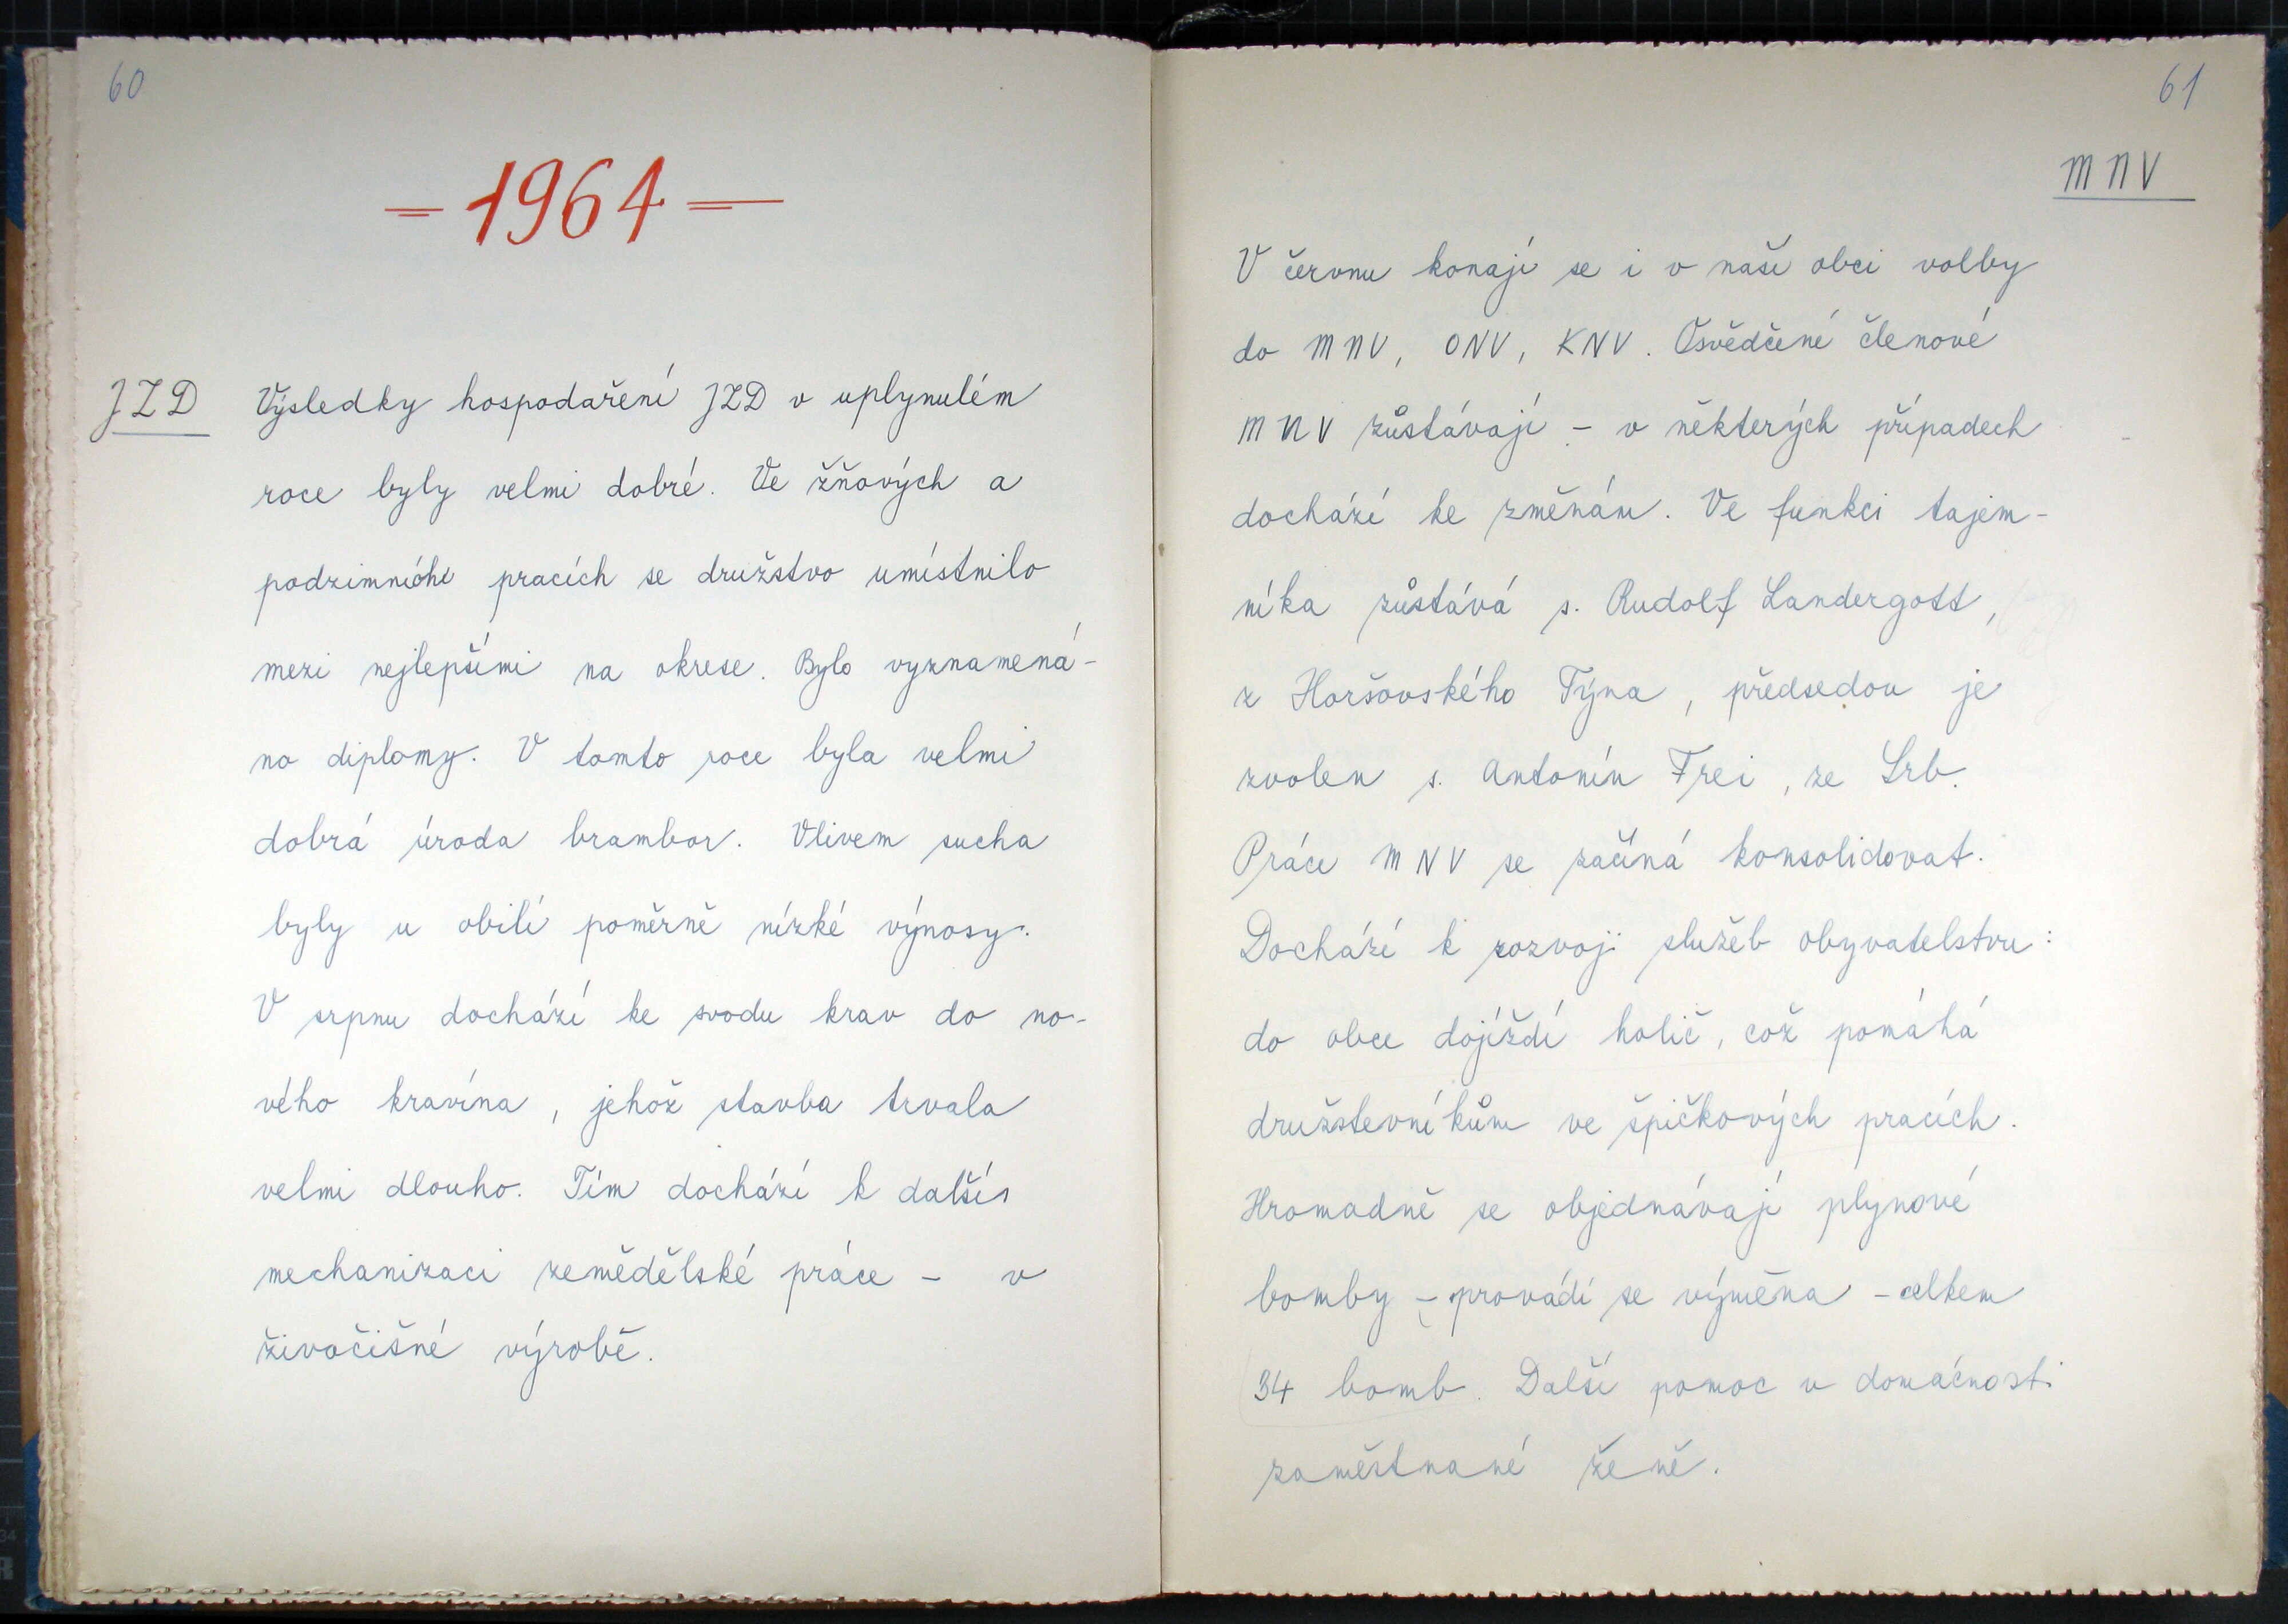 60
= 1964 =
JZD
Výsledky hospodaření JZD v uplynulém
roce byly velmi dobré. Ve žňových a
podzimních pracích se družstvo umístnilo
mezi nejlepšími na okrese. Bylo vyznamená-
no diplomy. V tomto roce byla velmi
dobrá úroda brambor. Vlivem sucha
byly u obilí poměrně nízké výnosy.
V srpnu dochází ke svodu krav do no-
vého kravína, jehož stavba trvala
velmi dlouho. Tím dochází k další
mechanizaci zemědělské práce - v
živočišné výrobě.
61
MNV
V červnu konají se i v naší obci volby
do MNV, ONV, KNV. Osvědčené členové
MNV zůstávají - v některých případech
dochází ke změnám. Ve funkci tajem-
níka zůstává s. Rudolf Landergott,
z Horšovského Týna, předsedou je
zvolen s. Antonín Frei, ze Srb.
Práce MNV se začíná konsolidovat.
Dochází k rozvoji služeb obyvatelstvu:
do obce dojíždí holič, což pomáhá
družstevníkům ve špičkových pracích.
Hromadně se objednávají plynové
bomby - provádí se výměna - celkem
34 bomb. Další pomoc v domácnosti
zaměstnané ženě.